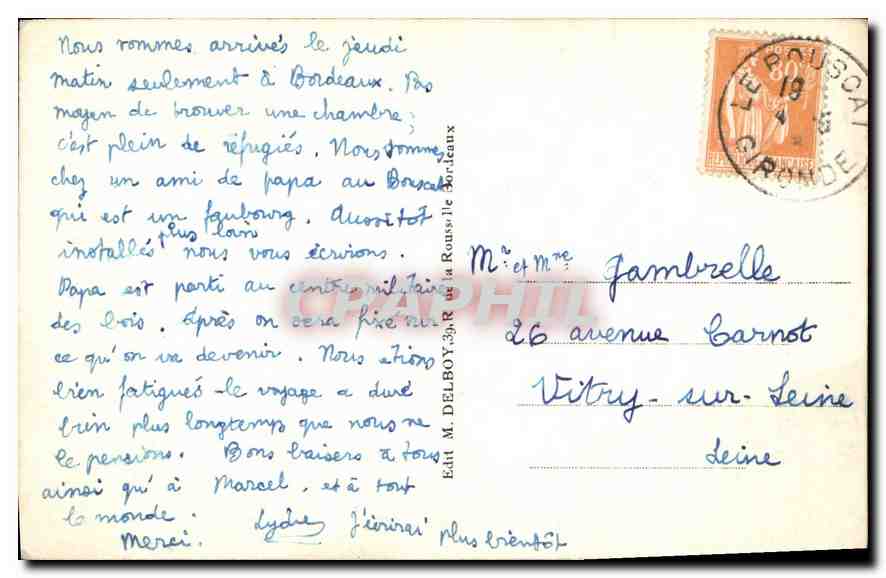 Nous sommes arrivés le jeudi
matin seulement à Bordeaux. Pas
moyen de trouver une chambre;
c'est plein de réfugiés. Nous sommes
chez un ami de papa au Bouscat
qui est un faubourg. Aussitôt
plus loin
installés nous vous écrirons.
Papa est parti au centre militaire
des bois. Après on sera fixé sur
ce qu'on va devenir. Nous étions
bien fatigués - le voyage a duré
bien plus longtemps que nous ne
le pensions. Bons baisers à tous
ainsi qu'à Marcel, et à tout
le monde. Lydie J'écrirai plus bientôt
Merci.
Edit M. DELBOY, 39, R de la Rousselle Bordeaux
80c
POSTES
RÉPUBLIQUE FRANÇAISE
LE BOUSCAT
19
GIRONDE
Mr et Mme Gambrelle
26 avenue Carnot
Vitry-sur-Seine
Seine
CPAPHIL